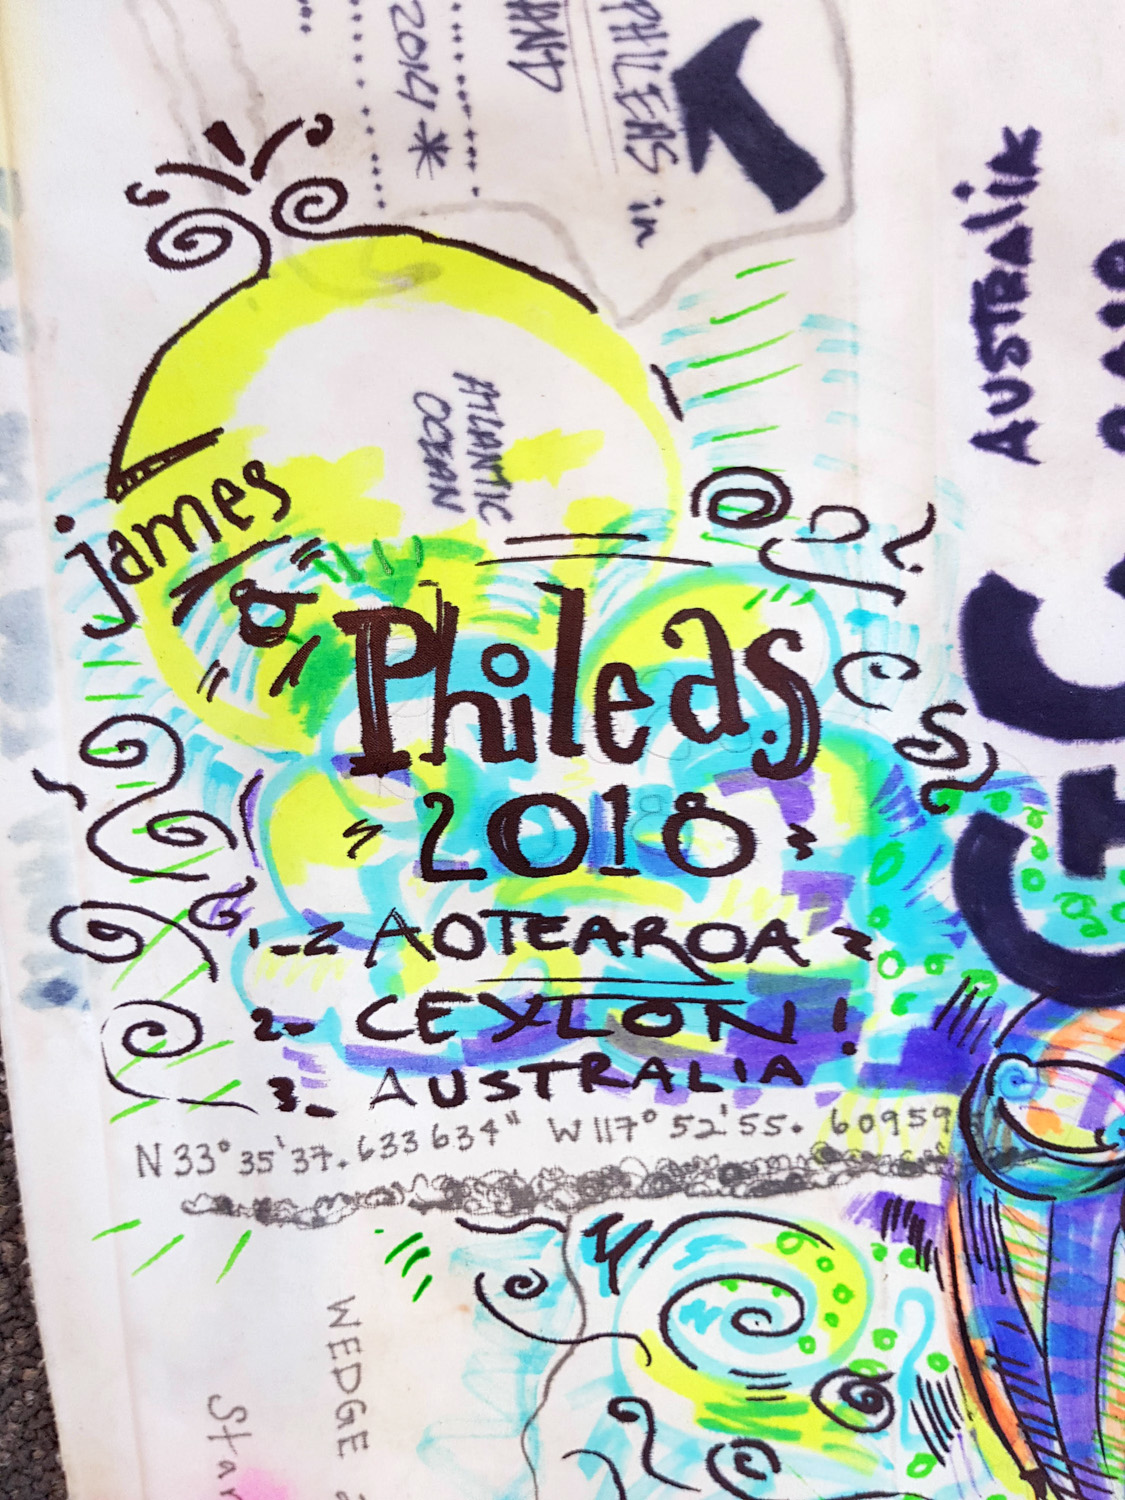 PHILEAS in
2014 *
AUSTRALIA
ATLANTIC
OCEAN
james
&
Phileas
2018
1- AOTEAROA
2- CEYLON!
3- AUSTRALIA
N 33° 35' 37. 633634" W 117° 52' 55. 60959
WEDGE